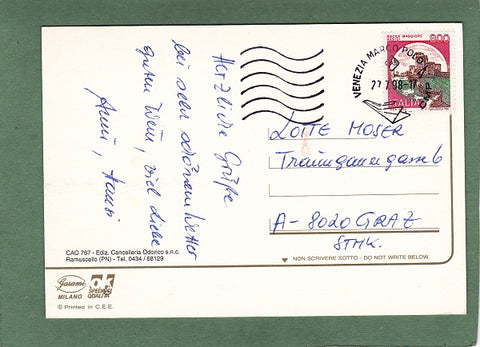 Herzliche Grüße
bei sehr schönem Wetter
guten Wein, viel Liebe
800
VENEZIA MARCO POLO
27.7.98-17
ITALIA
LOTTE MOSER
Traungauergasse 6
A-8020 GRAZ
STMK.
CAO 767 - Ediz. Cancelleria Odorico s.n.c.
Ramuscello (PN) - Tel. 0434 / 68129
NON SCRIVERE SOTTO - DO NOT WRITE BELOW
Garami
MILANO
© Printed in C.E.E.